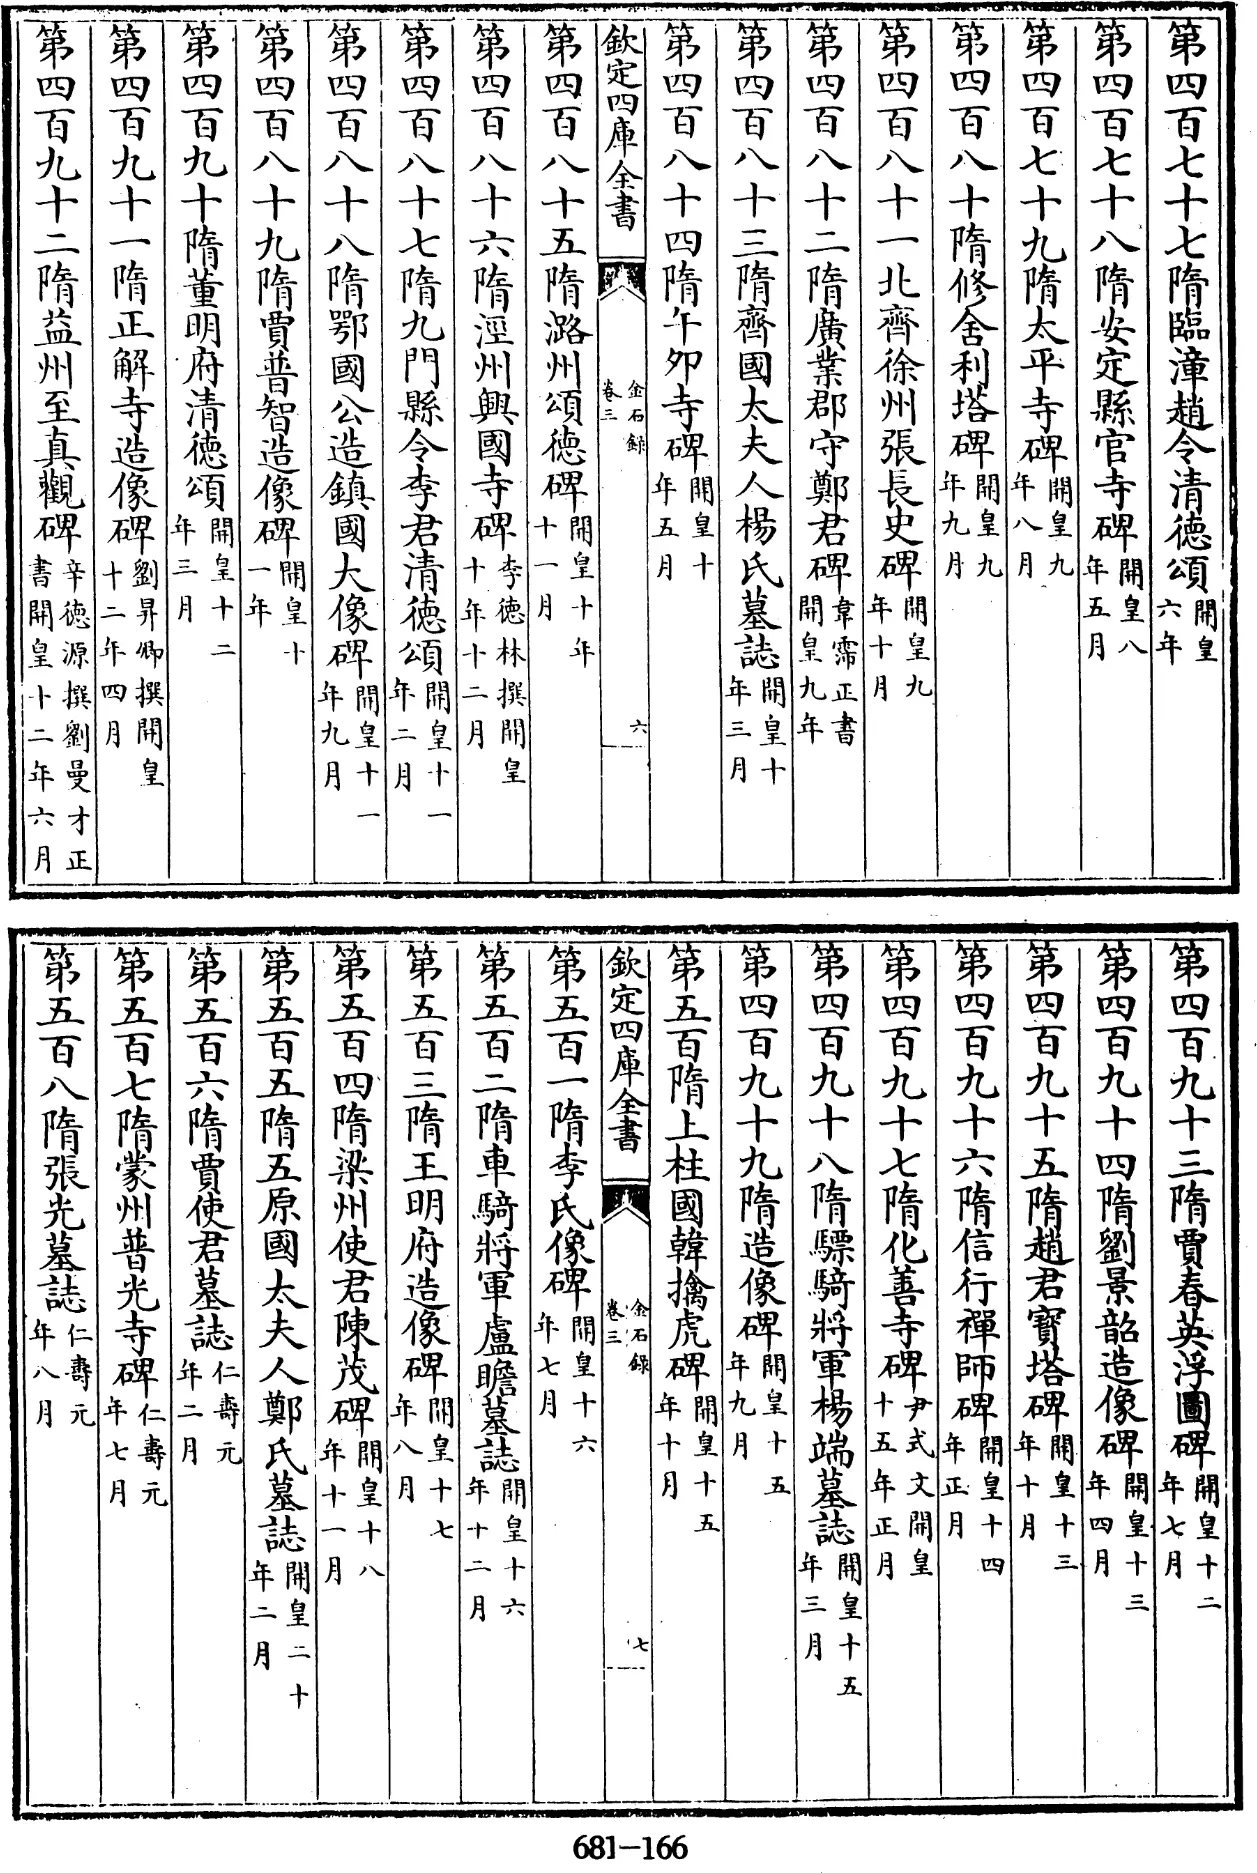 第四百七十七隋臨漳趙令清德頌開皇六年
第四百七十八隋安定縣官寺碑開皇八年五月
第四百七十九隋太平寺碑開皇九年八月
第四百八十隋修舍利塔碑開皇九年九月
第四百八十一北齊徐州張長史碑開皇九年十月
第四百八十二隋廣業郡守鄭君碑韋霈正書開皇九年
第四百八十三隋齊國太夫人楊氏墓誌開皇十年三月
第四百八十四隋午夘寺碑開皇十年五月
欽定四庫全書 金石錄卷三 六
第四百八十五隋潞州頌德碑開皇十年十一月
第四百八十六隋涇州興國寺碑李德林撰開皇十年十二月
第四百八十七隋九門縣令李君清德頌開皇十一年二月
第四百八十八隋鄂國公造鎮國大像碑開皇十一年九月
第四百八十九隋賈普智造像碑開皇十一年
第四百九十隋董明府清德頌開皇十二年三月
第四百九十一隋正解寺造像碑劉昇卿撰開皇十二年四月
第四百九十二隋益州至真觀碑辛德源撰劉曼才正書開皇十二年六月
第四百九十三隋賈春英浮圖碑開皇十二年七月
第四百九十四隋劉景韶造像碑開皇十三年四月
第四百九十五隋趙君寶塔碑開皇十三年十月
第四百九十六隋信行禪師碑開皇十四年正月
第四百九十七隋化善寺碑尹式文開皇十五年正月
第四百九十八隋驃騎將軍楊端墓誌開皇十五年三月
第四百九十九隋造像碑開皇十五年九月
第五百隋上柱國韓擒虎碑開皇十五年十月
欽定四庫全書 金石錄卷三 七
第五百一隋李氏像碑開皇十六年七月
第五百二隋車騎將軍盧瞻墓誌開皇十六年十二月
第五百三隋王明府造像碑開皇十七年八月
第五百四隋梁州使君陳茂碑開皇十八年十一月
第五百五隋五原國太夫人鄭氏墓誌開皇二十年二月
第五百六隋賈使君墓誌仁壽元年二月
第五百七隋蒙州普光寺碑仁壽元年七月
第五百八隋張光墓誌仁壽元年八月
681-166